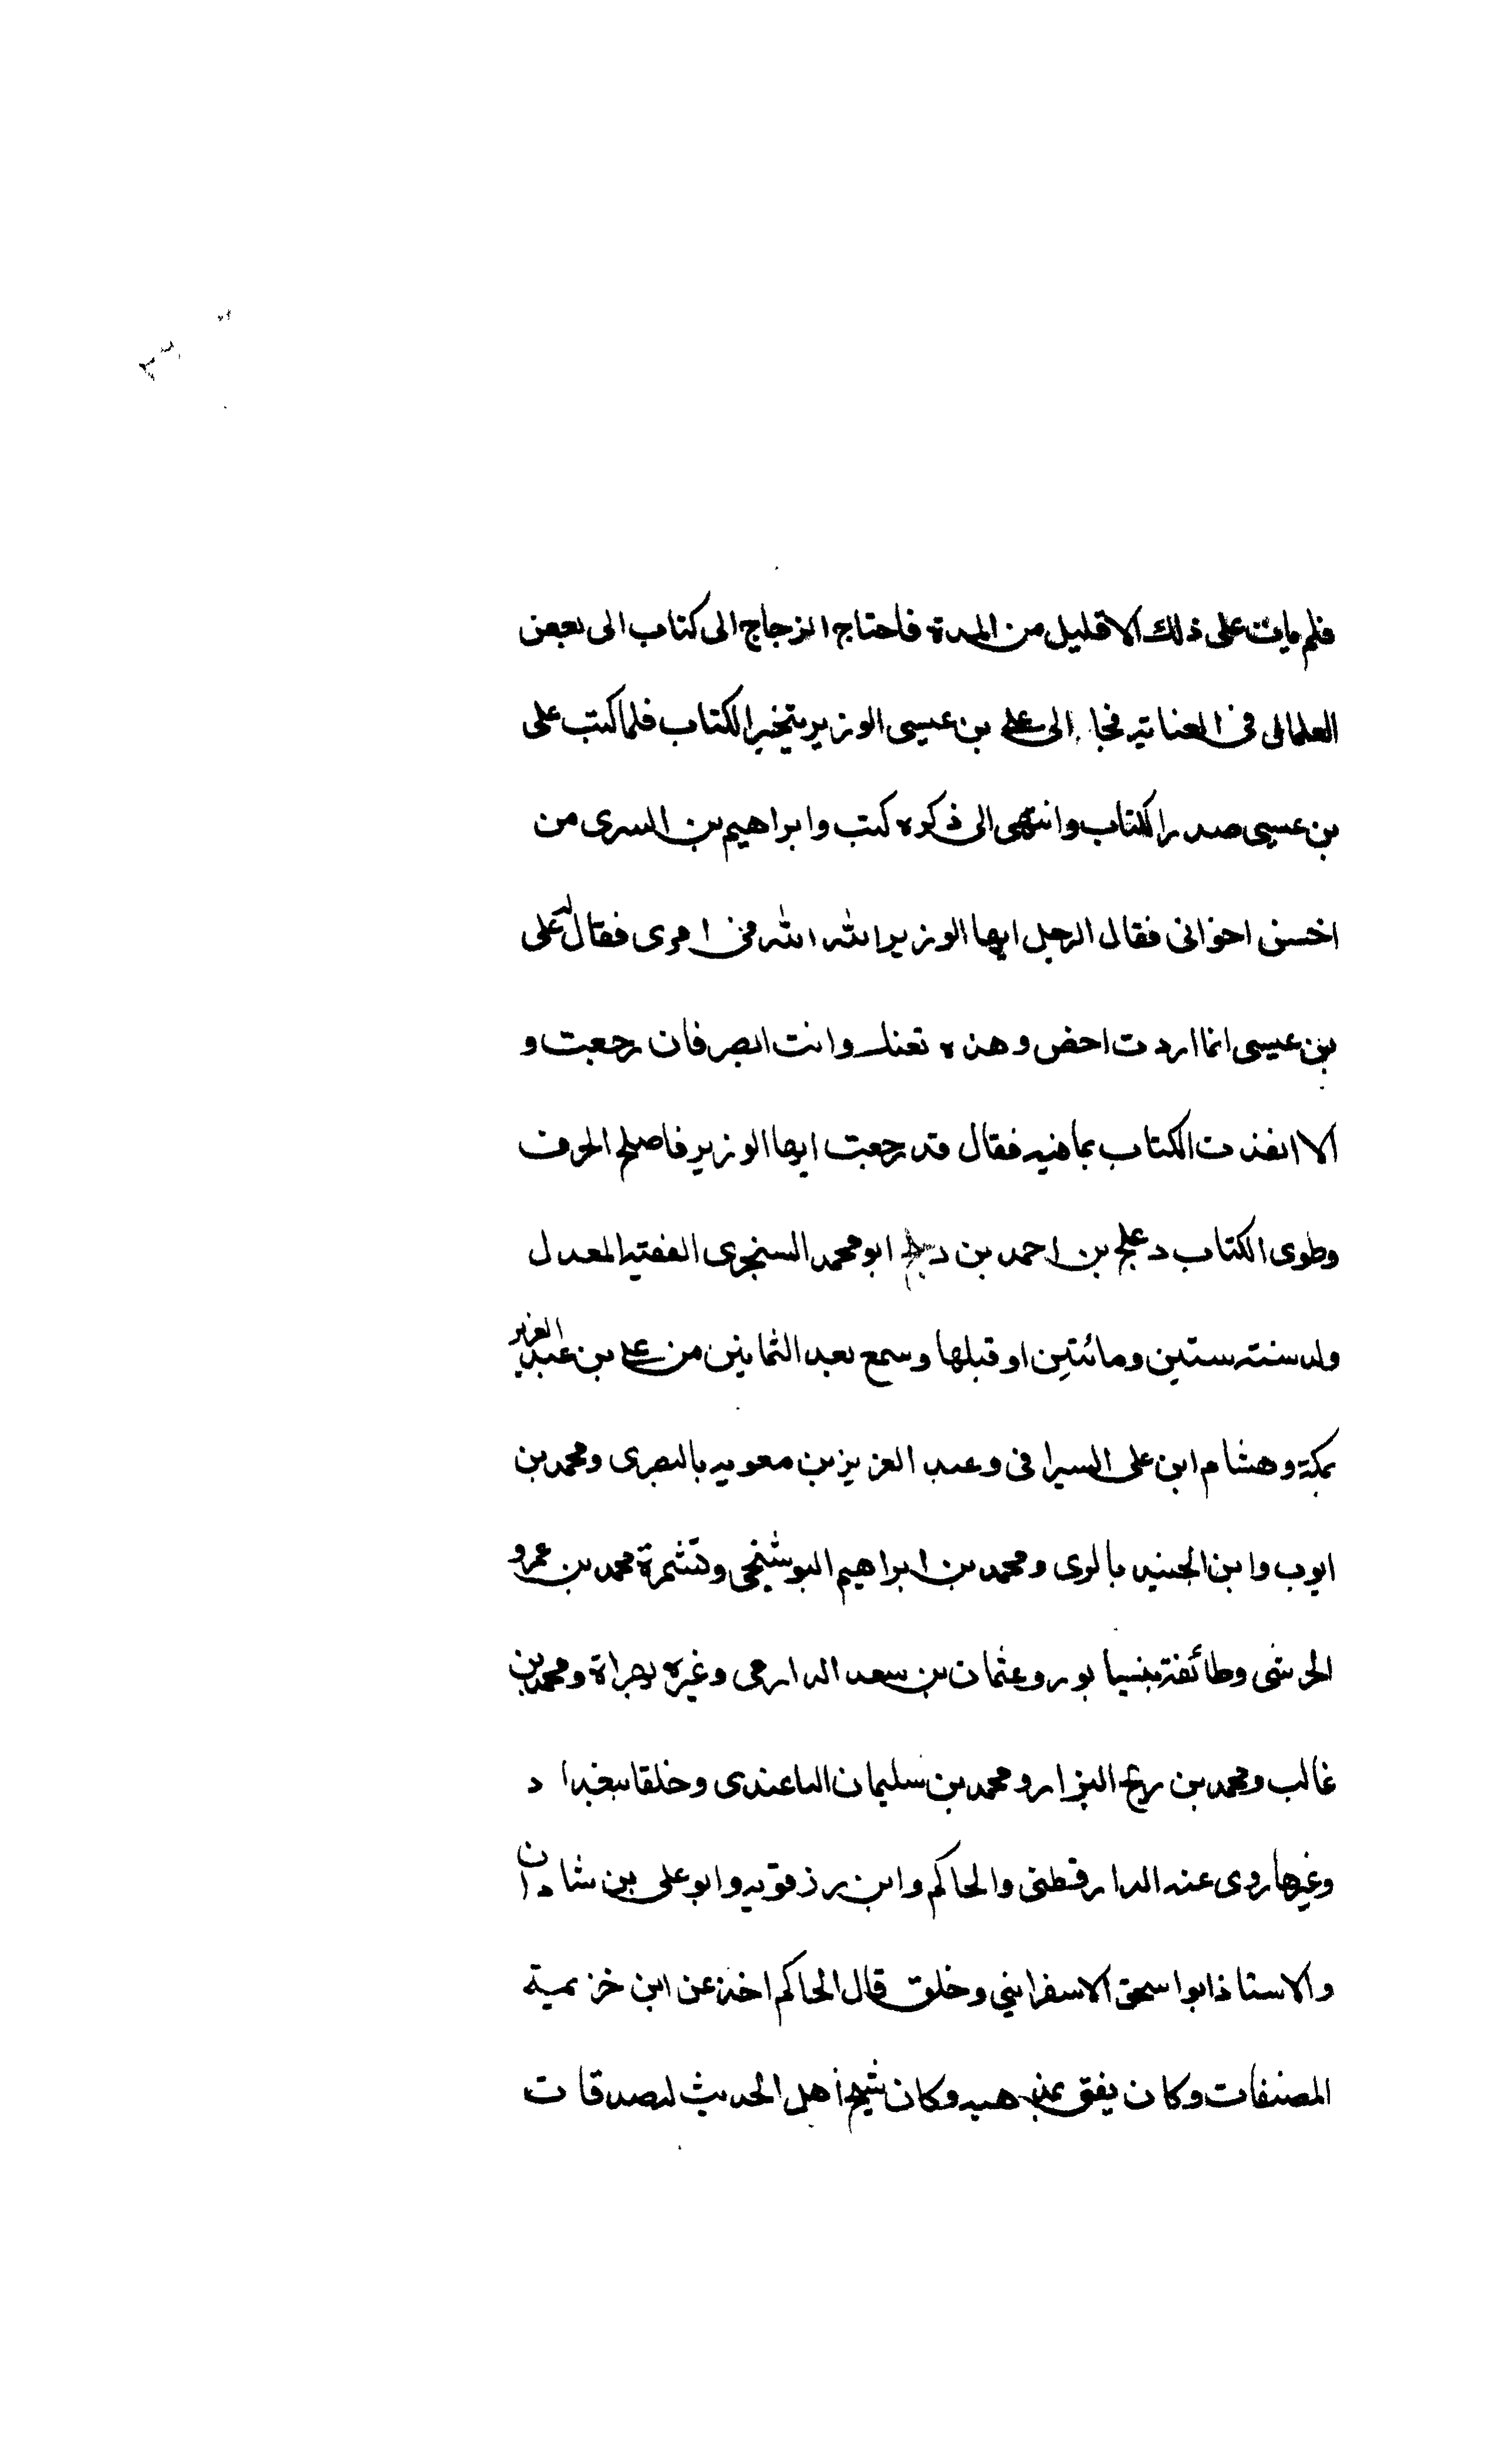 فلم يات على ذلك الا قليل من المدة فاحتاج الزجاج الى كتاب الى بعض
العمال فى العناية فجا الى على بن عيسى الوزير يتخير الكتاب فلما كتب على
بن عيسى صدر الكتاب وانتهى الى ذكره كتب وابراهيم بن السرى من
اخسن اخوانى فقال الرجل ايها الوزير الله الله فى امرى فقال له على
بن عيسى انما اردت احض وهذه تعنك وانت ابصر فان رجعت و
الا انفذت الكتاب بما فيه فقال قد رجعت ايها الوزير فاصلح الحرف
وطوى الكتاب دعلج بن احمد بن دعلج ابو محمد السنجرى الفقيه المعدل
ولد سنة ستين ومائتين او قبلها وسمع بعد الثمانين من على بن عبد العزيز
بمكة وهشام ابن على السيرافى وعبد العزيز بن معويه بالبصرى ومحمد بن
ايوب وابن الجنيد بالرى ومحمد بن ابراهيم البوشنجى وتشمرة محمد بن عمرو
الحرشى وطائفة بنيسابور وعثمان بن سعد الدارمى وغيره بهراة ومحمد بن
غالب ومحمد بن ربح البزار ومحمد بن سليمان الباعندى وخلقا ببغداد
وغيرها روى عنه الدارقطنى والحاكم وابن رزقويه وابو على بن شاذان
والاستاذ ابو اسحق الاسفراينى وخلق قال الحاكم اخذ عن ابن خزيمية
المصنفات وكان يفق بمذهبه وكان شيخ أهل الحديث لصدقات